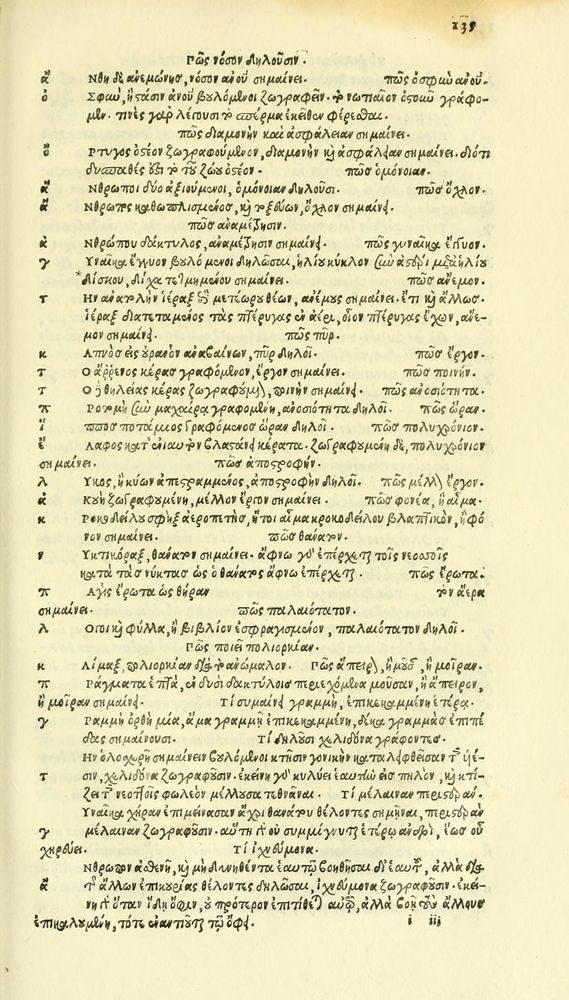 135
Πῶς νόσον δηλοῦσιν.
ἄ Νθη δὲ ἀνεμώνης, νόσον ἀνου σημαίνει. πῶς ὀσφιὺ ἀνου.
ὀ Σφιὺ, ἢ στάσιν ἀνου βουλόμενοι ζωγραφεῖν τὸ νωτιαῖον ὀστοιῶ γράφο-
μεν. τινὲς γαρ λέγουσι τὸ σπέρμα ἐκεῖθεν φέρεσθαι.
πῶς διαμονὴν καὶ ἀσφάλειαν σημαίνει.
ὄ Ρτυγος ὀστέον ζωγραφούμενον, διαμονὴν κὶ ἀσφάλειαν σημαίνει. διότι
δυσπαθὲς ἐστι τὸ τοῦ ζώου ὀστέον. πῶς ὁμόνοιαν.
ἄ Νθρωποι δύο δεξιούμενοι, ὁμόνοιαν δηλοῦσι. πῶς ὄχλον.
ἄ Νθρωπος καθωπλισμένος, κὶ τοξεύων, ὄχλον σημαίνει.
πῶς ἀναμέτρησιν.
ἀ Νθρώπου δάκτυλος, ἀναμέτρησιν σημαίνει. πῶς γυναῖκα ἔγγυον.
γ Υναῖκα ἔγγυον βουλόμενοι δηλῶσαι, ἡλίου κύκλον σὺν ἀστέρι μετὰ ἡλίου
*δίσκου, δίχα τετμημένου σημαίνει. πῶς ἄνεμον.
τ Ην ἀνατολὴν ἱέραξ πρὸς μετέωρου θέων, ἀνέμους σημαίνει. ἔτι κὶ ἄλλως.
ἱέραξ διατεταμένος τὰς πτέρυγας ἐν ἀέρι, οἷον πτέρυγας ἔχων, ἄνε-
μον σημαίνει. πῶς πῦρ.
κ Απνὸς εἰς οὐρανὸν ἀναβαίνων, πῦρ δηλοῖ. πῶς ἔργον.
τ Ο ἄῤῥενος κέρας γραφόμενον, ἔργον σημαίνει. πῶς ποινήν.
τ Ο δὲ θηλείας κέρας ζωγραφούμενον, ποινὴν σημαίνει. πῶς ἀνοσιότητα.
π Ροτομὴ σὺν μαχαίρᾳ γραφομένη, ἀνοσιότητα δηλοῖ. πῶς ὥραν.
ἵ ππος ποτάμιος γραφόμενος ὥραν δηλοῖ. πῶς πολυχρόνιον.
ἔ Λαφος κατ᾽ ἐνιαυτὸν βλαστάνει κέρατα. ζωγραφουμένη δὲ, πολυχρόνιον
σημαίνει. πῶς ἀποστροφήν.
λ Υκος, ἢ κύων ἀπεστραμμένος, ἀποστροφὴν δηλοῖ. πῶς μέλλον ἔργον.
ἀ Κοὴ ζωγραφουμένη, μέλλον ἔργον σημαίνει. πῶς φονέα, ἢ αἷμα.
κ Ροκοδείλου σφὴξ ἀεροπετὴς, ἤτοι αἷμα κροκοδείλου βλαπτικὸν, ἢ φό
νον σημαίνει. πῶς θάνατον.
ν Υκτικόραξ, θάνατον σημαίνει. ἄφνω γὰρ ἐπέρχεται τοῖς νεοσσοῖς
κατὰ τὰς νύκτας ὡς ὁ θάνατος ἄφνω ἐπέρχεται. πῶς ἔρωτα.
π Αγὶς ἔρωτα ὡς θήραν τὸν ἀέρα
σημαίνει. πῶς παλαιότατον.
λ Ογοι κὶ φύλλα, ἢ βιβλίον ἐσφραγισμένον, παλαιότατον δηλοῖ.
Πῶς ποιεῖ πολιορκίαν.
κ Λίμαξ, πολιορκίαν διὰ τὸ ἀνώμαλον. Πῶς ἄπειρον, ἢ μοῦσαν, ἢ μοῖραν.
π Ράγματα ἑπτὰ, ἐν δυσὶ δακτύλοις περιεχόμενα μοῦσαν, ἢ ἄπειρον,
ἢ μοῖραν σημαίνει. Τί σημαίνει γραμμὴ, ἐπικεκαμμένη ἑτέρα.
γ Ραμμὴ ὀρθὴ μία, ἅμα γραμμῇ ἐπικεκαμμένη, δέκα γραμμὰς ἐπιπέ
δας σημαίνουσι. Τί δηλοῦσι χελιδόνα γράφοντες.
Ην ὁλοχερῆ σημαίνειν βουλόμενοι κτῆσιν γονικὴν καταλειφθεῖσαν τοῖς υἱέ-
τ σιν, χελιδόνα ζωγραφοῦσιν. ἐκείνη γὰρ κυλίει ἑαυτὴν εἰς πηλὸν, κὶ κτί-
ζει τοῖς νεοττοῖς φωλεὸν μέλλουσα τεθνάναι. Τί μέλαιναν περιστεράν.
Υναῖκα χήραν ἐπιμείνασαν ἄχρι θανάτου θέλοντες σημῆναι, περιστερὰν
γ μέλαιναν ζωγραφοῦσιν. αὕτη γὰρ οὐ συμμίγνυται ἑτέρῳ ἀνδρὶ, ἕως οὗ
χηρεύει. Τί ἰχνεύμονα.
Νθρωπον ἀσθενῆ, κὶ μὴ δυνηθέντα ἑαυτῷ βοηθῆσαι δι᾽ ἑαυτοῦ, ἀλλὰ διὰ
ἄ τῆς ἄλλων ἐπικουρίας θέλοντες δηλῶσαι, ἰχνεύμονα ζωγραφοῦσιν. ἐκεῖ-
νος γὰρ ὅταν ἴδῃ ὄφιν, οὐ πρότερον ἐπιτίθεται αὐτῷ, ἀλλὰ βοῇ τοὺς ἄλλους
ἐπικαλούμενος, τότε ἐναντιοῦται τῷ ὄφει. i iii